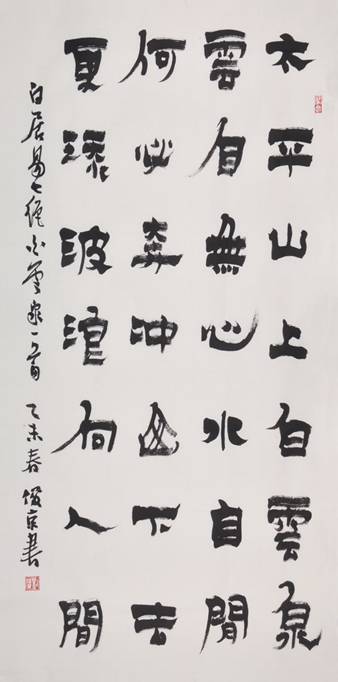 太平山上白雲泉
雲自無心水自閒
何必奔沖山下去
更添波浪向人間
白居易七绝白雲泉一首 乙未春 俊京書